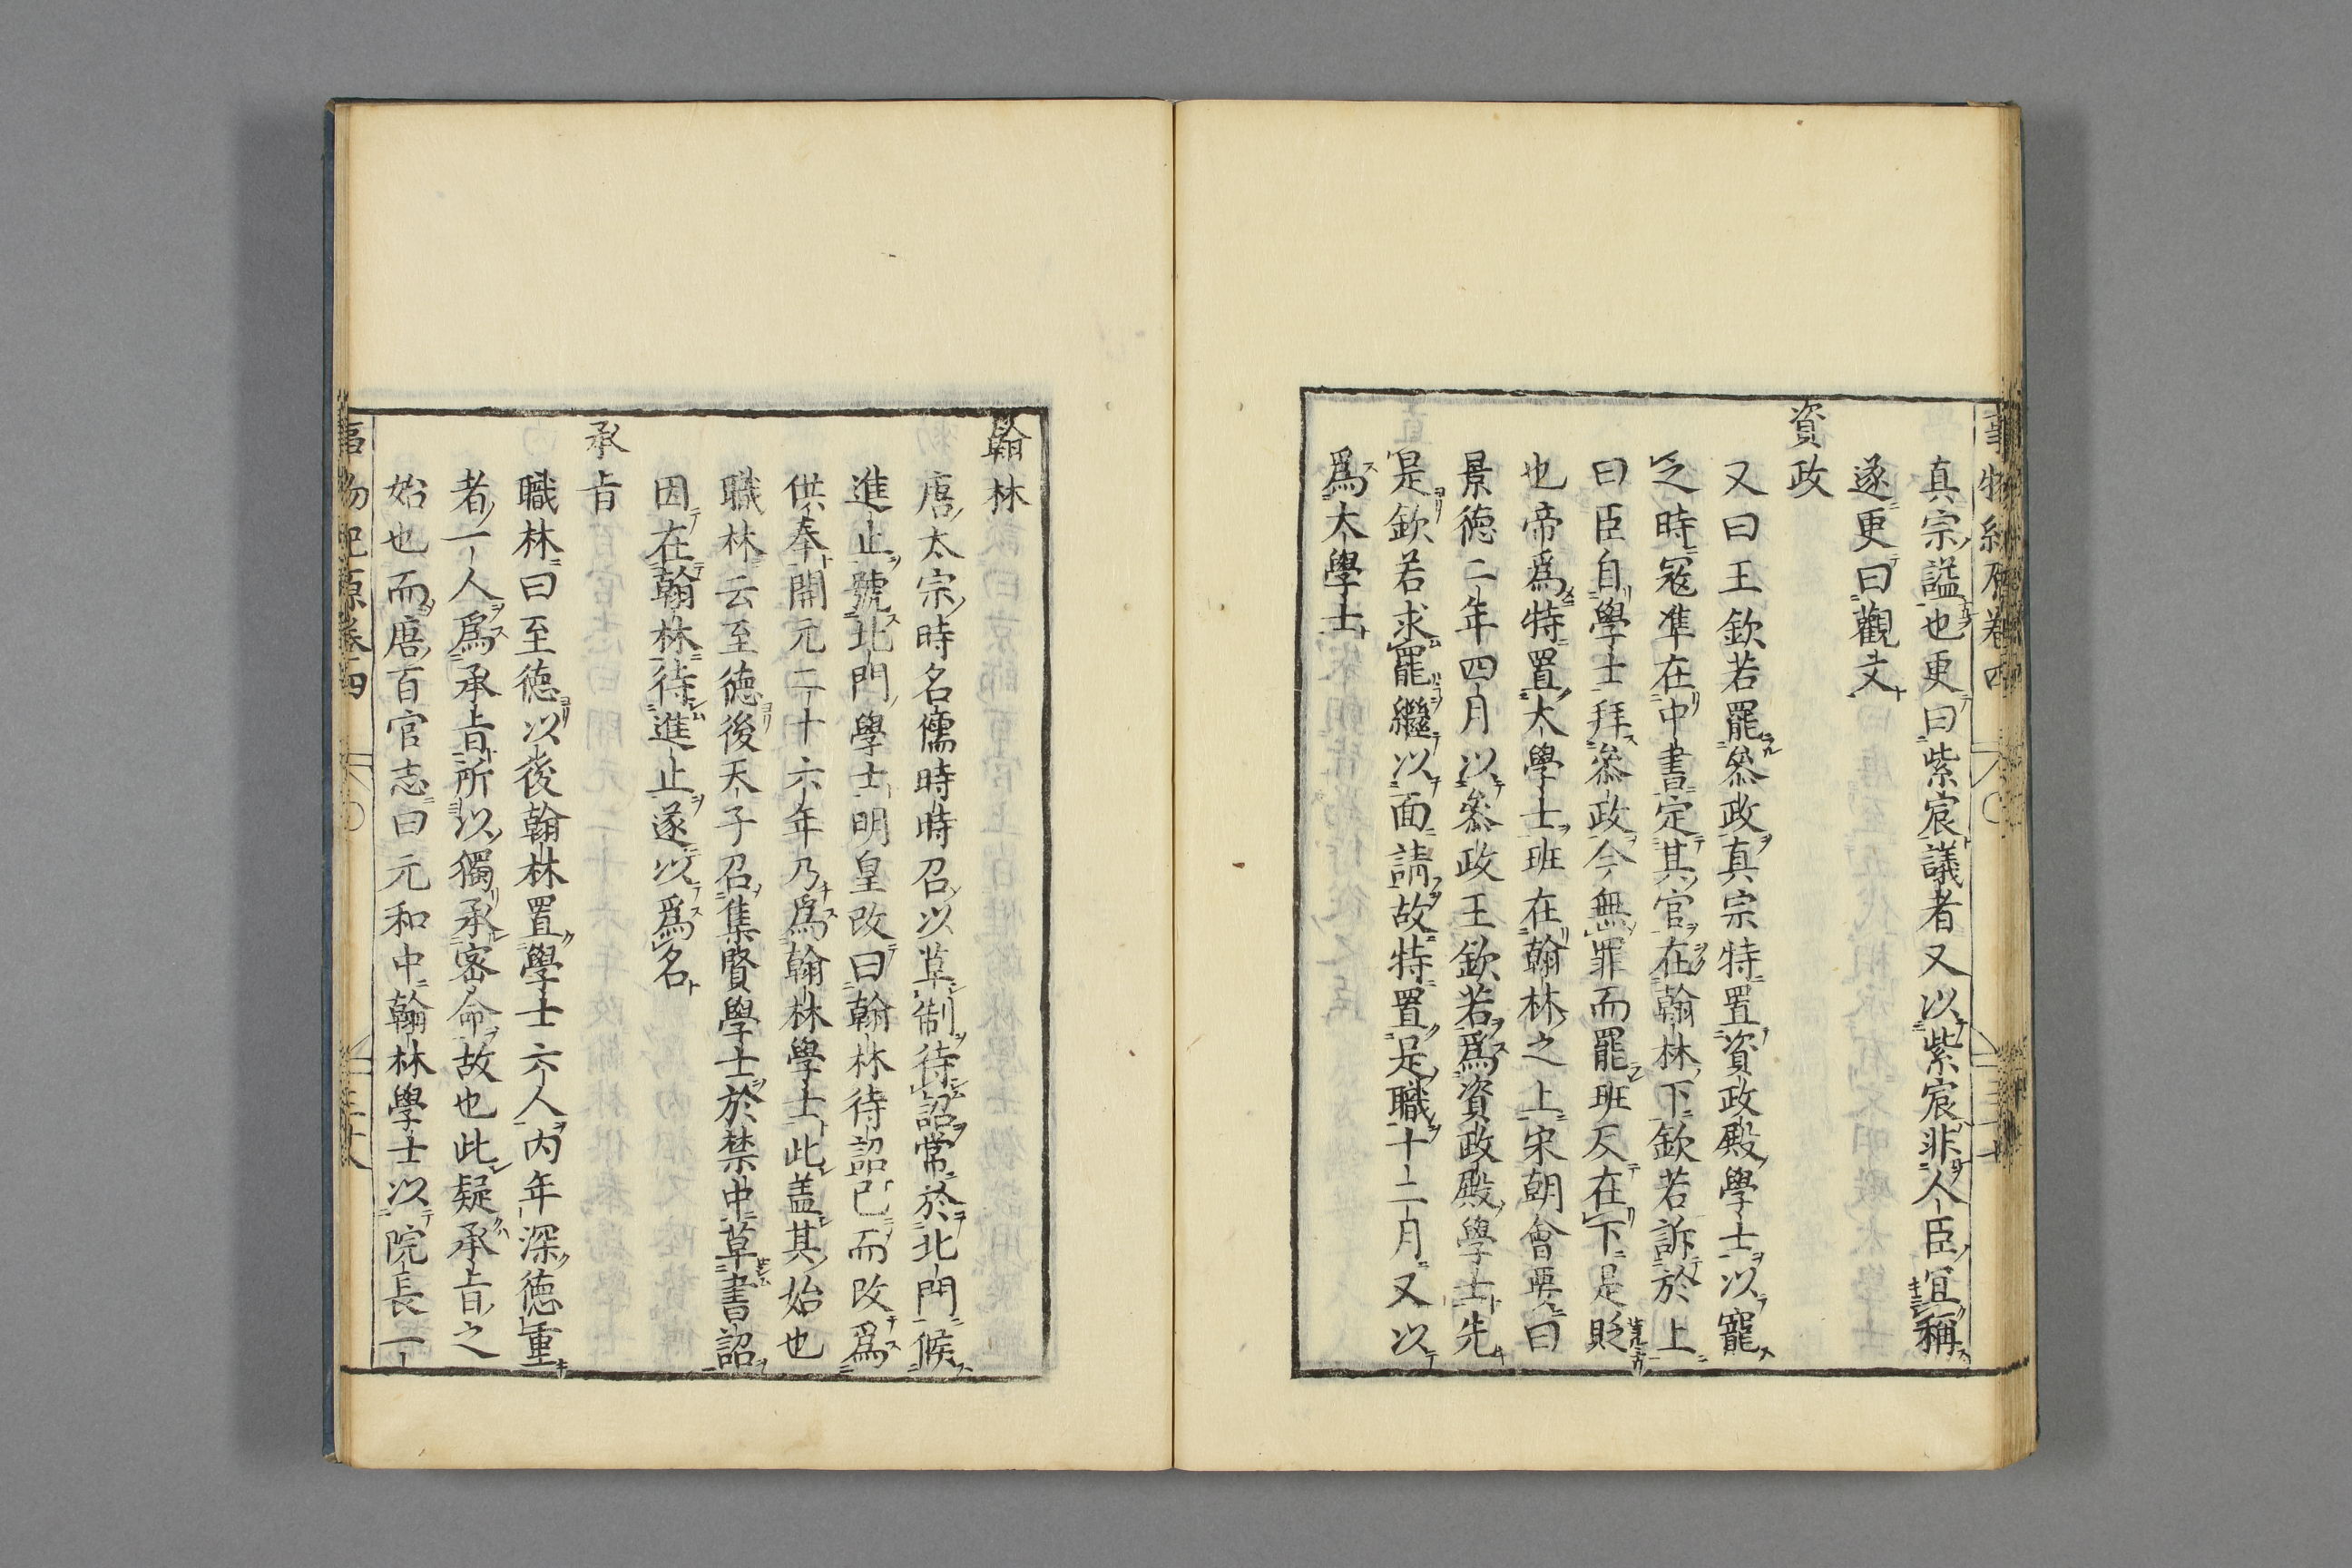 事物紀原卷四
真宗謚也更曰紫宸議者又以紫宸非人臣宜稱
遂更曰觀文
資政
又曰王欽若罷叅政真宗特置資政殿學士以寵
之時寇凖在中書定其官在翰林下欽若訴於上
曰臣自學士拜叅政今無罪而罷班反在下是貶
也帝爲特置大學士班在翰林之上宋朝會要曰
景德二年四月以叅政王欽若爲資政殿學士先
是欽若求罷繼以面請故特置是職十二月又以
爲大學士
翰林
唐太宗時名儒時時召以草制待詔常於北門候
進止號北門學士明皇改曰翰林待詔已而改爲
供奉開元二十六年乃爲翰林學士此盖其始也
職林云至德後天子召集賢學士於禁中草書詔
因在翰林待進止遂以爲名
承旨
職林曰至德以後翰林置學士六人内年深德重
者一人爲承旨所以獨承密命故也此疑承旨之
始也而唐百官志曰元和中翰林學士以院長一
事物紀原卷四